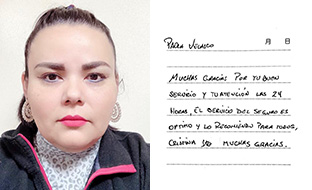 PAOLA VELASCO 月 日
MUCHAS GRACIAS POR TU BUEN
SERVICIO Y TU ATENCIÓN LAS 24
HORAS, EL SERVICIO DEL SEGURO ES
OPTIMO Y LO RECOMIENDO PARA TODOS,
CRISTINA MUCHAS GRACIAS.